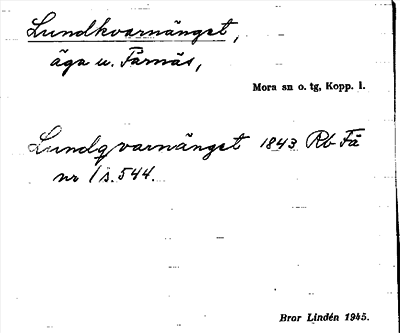 Lundkvarnänget,
äga u. Färnäs,
Mora sn o. tg, Kopp. l.
Lundqvarnänget 1843 Rb Fä
nr 1 s. 544.
Bror Lindén 1945.